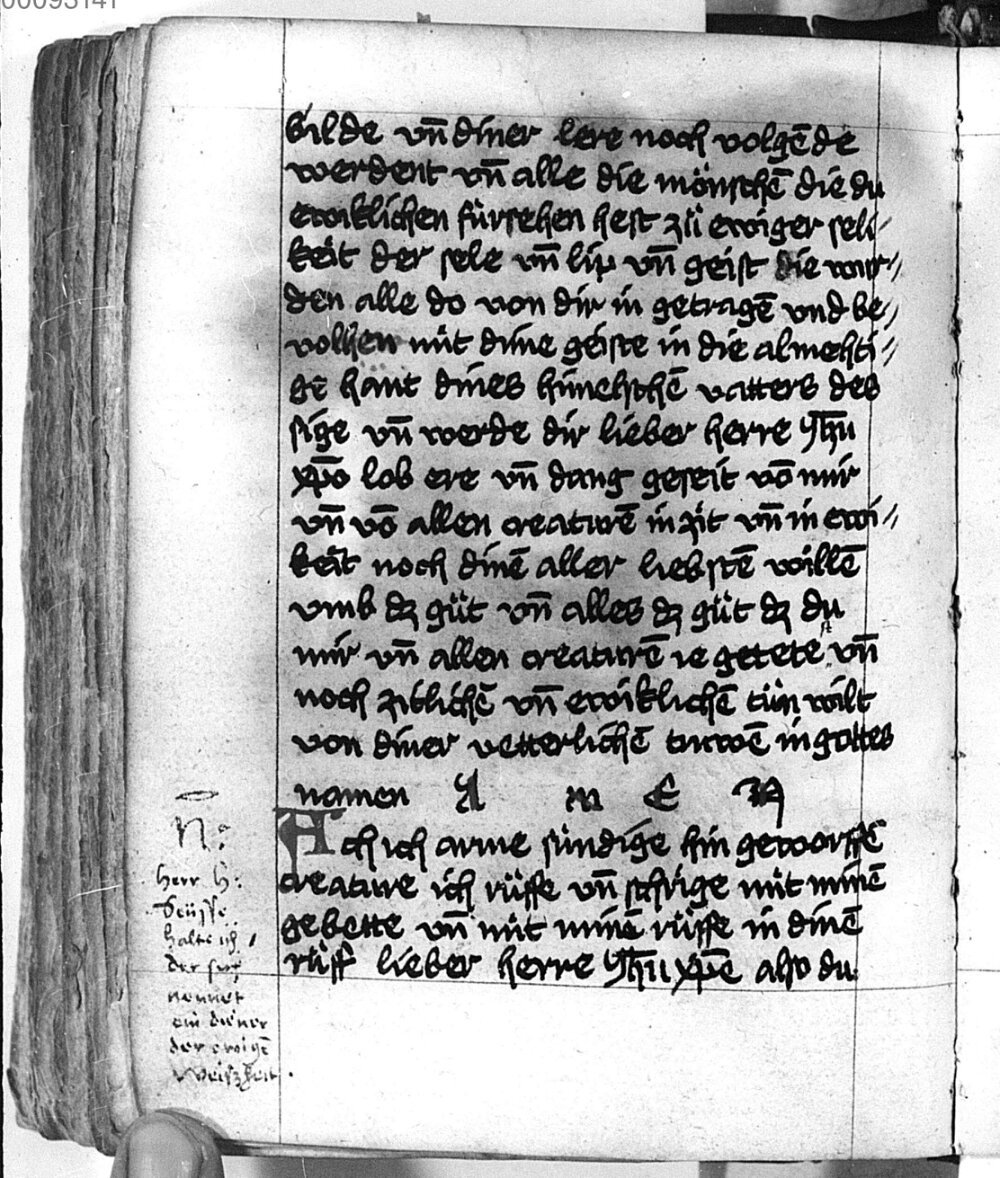 00093141
bilde vn̄ diner lere noch volgēde
werdent vn̄ alle die mönschē die du
ewiklichen fürsehen hest zů ewiger seli⸗
keit der sele vn̄ lip vn̄ geist die wur⸗
den alle do von dir in getragē vnd be⸗
volhen mit dime geiste in die almehti⸗
gē hant dines himelschē vatters des
sige vn̄ werde dir lieber herre yh̄u
xp̄o lob ere vn̄ dang geseit vō mir
vn̄ vō allen creaturē in zit vn̄ in ewi⸗
keit noch dinē aller liebstē willē
vmb dz gůt vn̄ alles dz gůt dz du
mir vn̄ allen creaturē ie getete vn̄
noch zitlichē vn̄ ewiklichē tůn wilt
von diner vetterlichē truwē in gottes
namen A m E N
Ach ich arme sündige hin geworffē
creature ich rüffe vn̄ schrige mit minē
gebette vn̄ mit minē rüffe in dinē
rüff lieber herre yh̄u xp̄e also du
N:
herr H:
Seüsse
halte ich /
der sich
nennet
ein diener
der ewigē
Weiszheit.